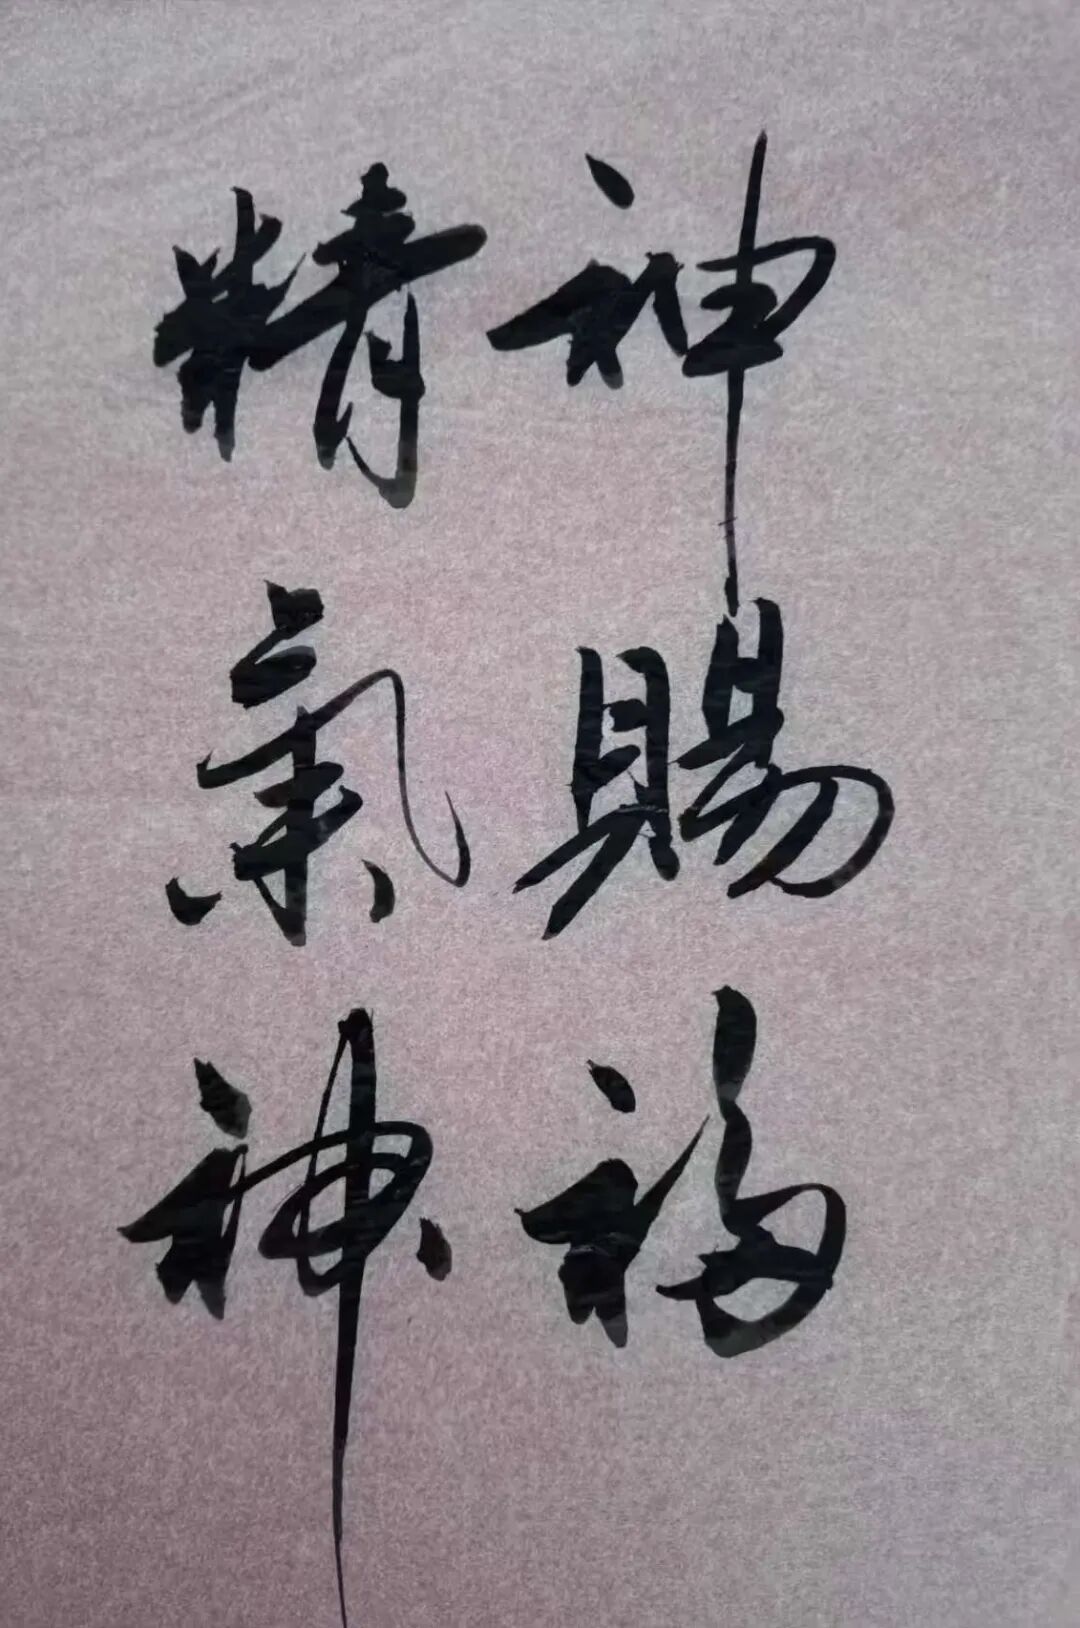 神賜福
精氣神